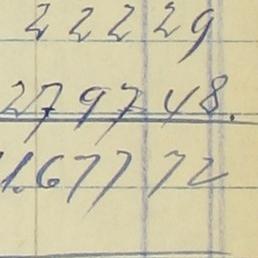 22229
279748.
1.67772